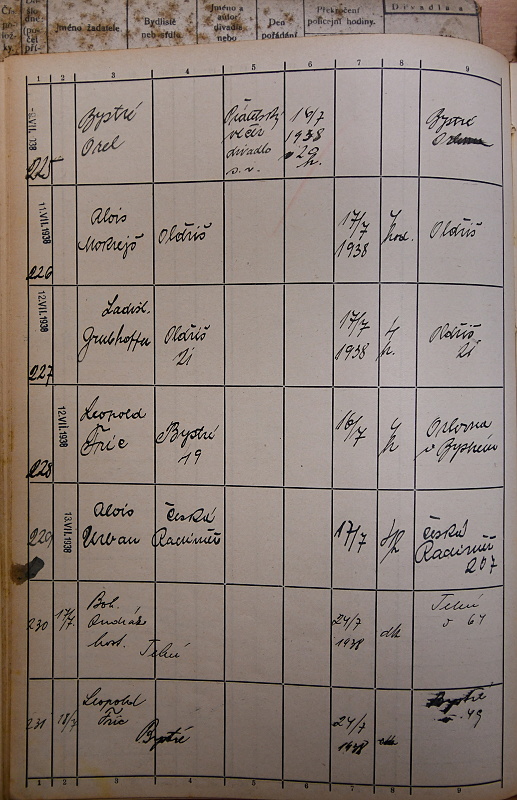 Jméno žadatele.
Bydliště
neb sídlo.
Jméno a
autor
divadla
nebo
Den
pořádání
Překročení
policejní hodiny.
Divadla
1 2 3 4 5 6 7 8 9
VII. 1938
225
Bystré
Orel
večer
divadlo
s. r.
16/7
1938
20
h.
Bystré
11.VII.1938
226
Alois
Mokrejš
Oldřiš
17/7
1938
4
hod.
Oldřiš
12.VII.1938
227
Ladisl.
Grubhoffer
Oldřiš
21
17/7
1938
4
h.
Oldřiš
21
12.VII.1938
228
Leopold
Fric
Bystré
19
16/7
4
h
Orlovna
v Bystrém
13.VII.1938
229
Alois
Urban
Česká
Radiměř
17/7
4h
Česká
Radiměř
207
230
17/7.
Boh.
host.
Telecí
24/7
1938
dtt
Telecí
č 64
231
18/7
Leopold
Fric
Bystré
24/7
1938
Bystré
č. 49
1 2 3 4 5 6 7 8 9